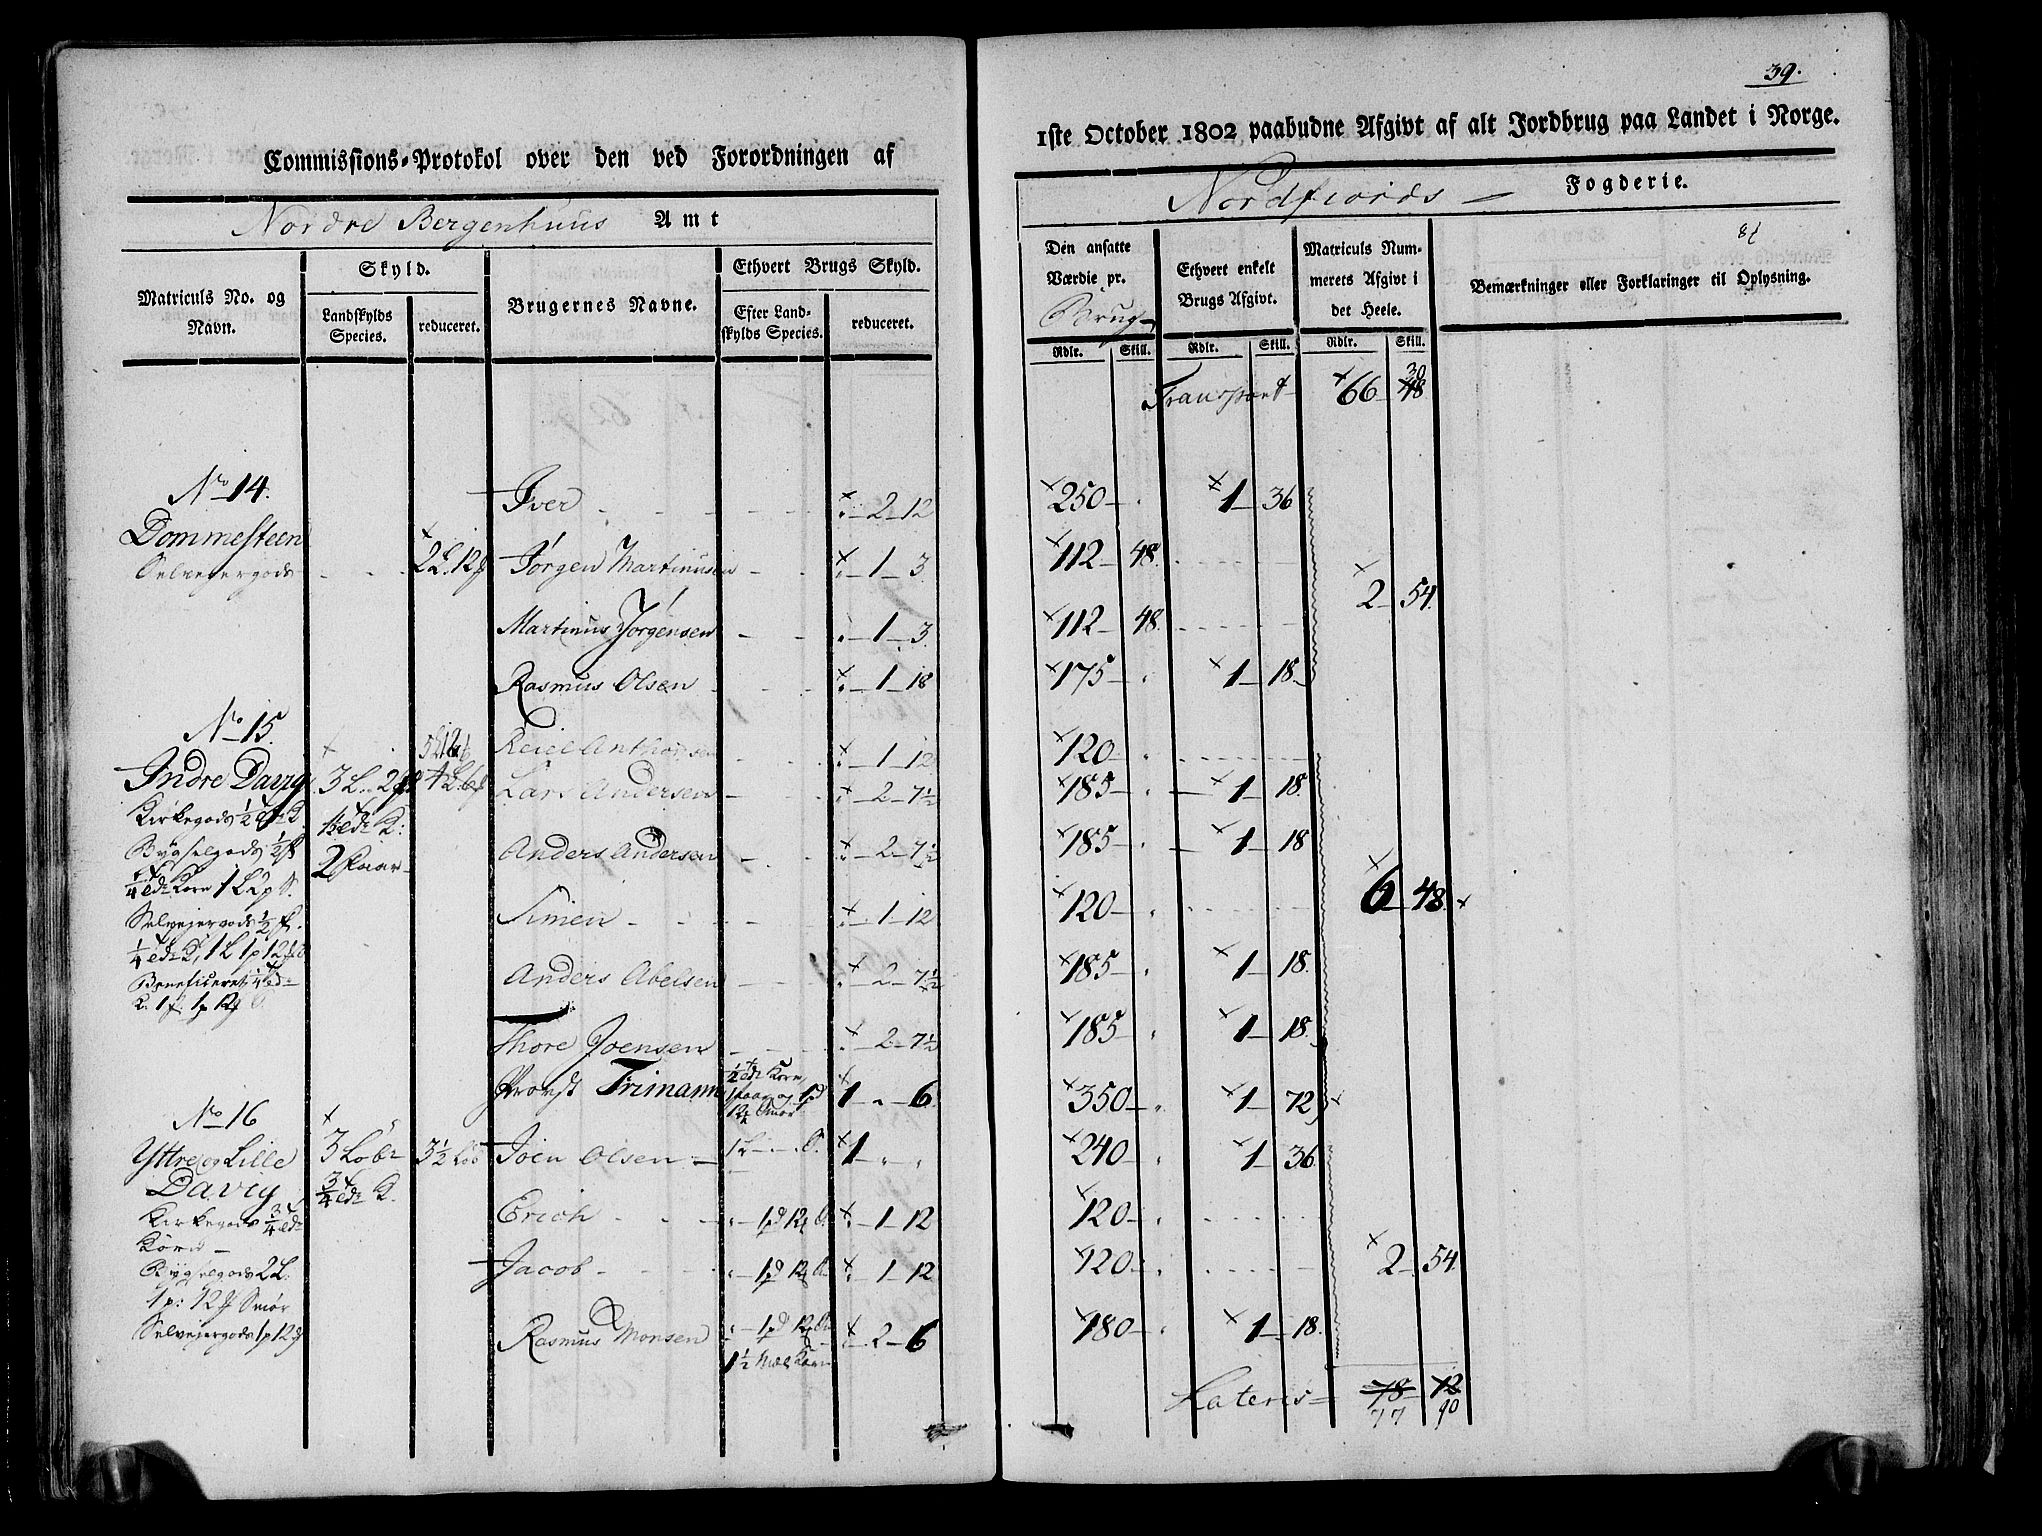 Commissions-Protokol over den ved Forordningen af
Nordre Bergenhuus Amt
Matriculs No. og Navn.
Skyld.
Landskylds Species.
reduceret.
Brugernes Navne.
Ethvert Brugs Skyld.
Efter Landskylds Species.
reduceret.
No 14.
Dommesteen
Selvejergods
2 L. 12
Iver - 2 - 12
Jørgen Martinusen - 1 - 3
Martinus Jørgensen - 1 - 3
Rasmus Olsen - 1 - 18
No 15.
Indre Davig
3 L. 2
Kirkegods 1/2
2 Huar
Bygselgods 1/2
1/4 Korn 1 L 2 p S.
Selvejergods 1/2
1/4 1 L 1 p 12
Beneficeret 1/4
K. 1 1 p 12
Anthonsen - 1 - 12
Lars Andersen - 2 - 7 1/2
Anders Andersen - 2 - 7 1/2
Simen - 1 - 12
Anders Abelsen - 2 - 7 1/2
Thore Joensen - 2 - 7 1/2
Provst Frimann 1 - " - 6
No 16
Yttre og Lille
Davig
3 Løb
3/4 K.
3 1/2 Løb
Kirkegods 3/4
Korn
Bygselgods 2 L.
1 p: 12 Smør
Selvejergods 1 p 12
Joen Olsen - 1 - " "
Erich - 1 - 12
Jacob - 1 - 12
Rasmus Monsen - 2 - 6
1 1/2 Korn
39.
1ste October 1802 paabudne Afgivt af alt Jordbrug paa Landet i Norge.
Nordfiords Fogderie.
Den ansatte Værdie pr.
Brug
Ethvert enkelt Brugs Afgivt.
Matriculs Nummerets Afgivt i det Heele.
Bemærkninger eller Forklaringer til Oplysning.
Rdlr. Skill. Rdlr. Skill. Rdlr. Skill.
Transport 66 30
250 - 1 - 36
112 - 48.
2 - 54.
112 - 48.
175 - 1 - 18.
120 -
185 - 1 - 18.
185 - 1 - 18
120 -
6 - 48
185 - 1 - 18.
185 - 1 - 18.
350 - 1 - 72
240 - 1 - 36.
120 -
120 -
2 - 54
180 - 1 - 18.
Lateris 78 12
77 90